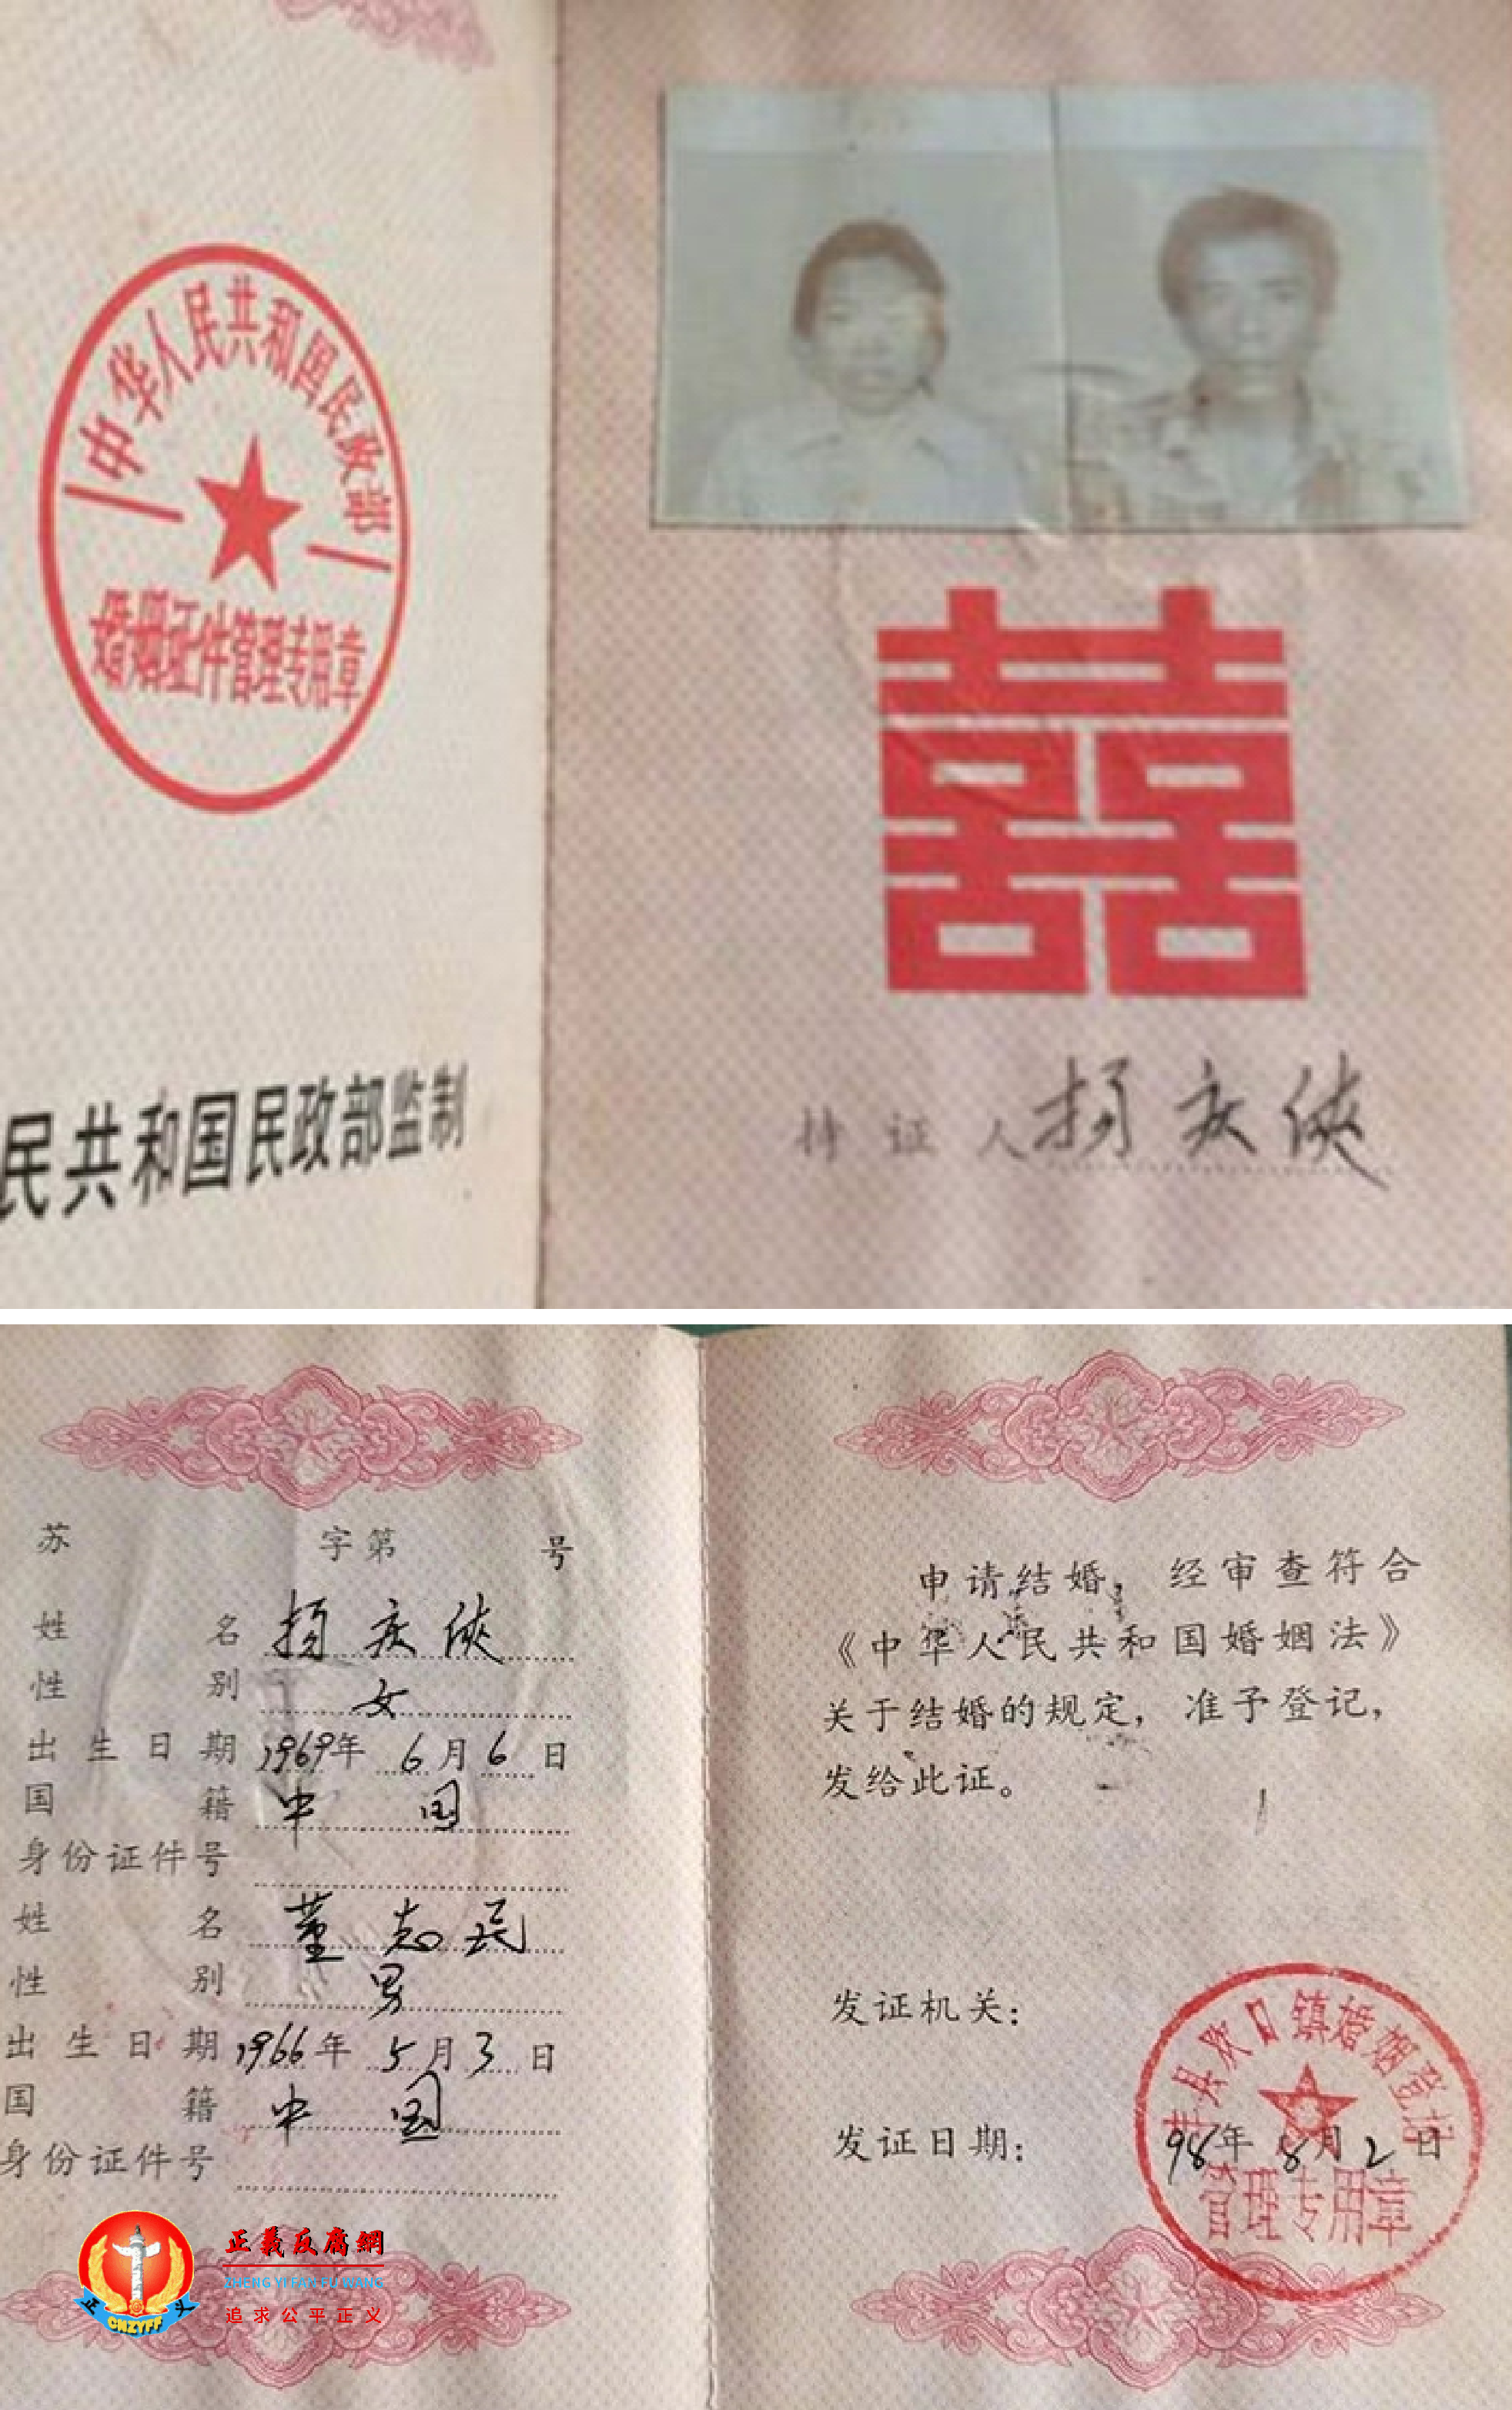 中华人民共和国民政部
婚姻证件管理专用章
民共和国民政部监制
囍
持证人 杨庆侠
苏 字第 号
姓名 杨庆侠
性别 女
出生日期 1969年 6月6日
国籍 中国
身份证件号
姓名 董志民
性别 男
出生日期 1966年 5月3日
国籍 中国
身份证件号
申请结婚，经审查符合
《中华人民共和国婚姻法》
关于结婚的规定，准予登记，
发给此证。
发证机关：
县欢口镇婚姻登记
管理专用章
发证日期： 98年 8月2日
正義反腐網
ZHENG YI FAN FU WANG
追求公平正义
CNZYFF